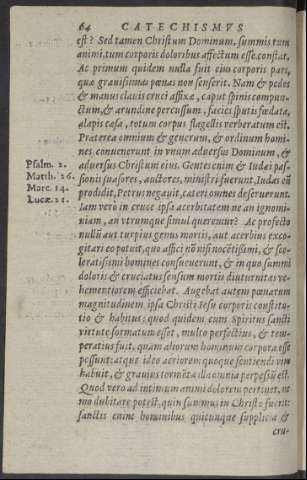 64 CATECHISMVS
est? Sed tamen Christum Dominum, summis tum
animi, tum corporis doloribus affectum esse, constat.
Ac primum quidem nulla fuit eius corporis pars,
quæ grauissimas pœnas non senserit. Nam & pedes
& manus clauis cruci affixæ, caput spinis compun-
ctum, & arundine percussum, facies sputis fœdata,
alapis cæsa, totum corpus flagellis verberatum est.
Præterea omnium & generum, & ordinum homi-
nes conuenerunt in vnum aduersus Dominum, &
Psalm. 2. aduersus Christum eius. Gentes enim & Iudæi pas-
Matth. 26. sionis suasores, auctores, ministri fuerunt, Iudas eū
Marc. 14. prodidit, Petrus negauit, cæteri omnes deseruerunt.
Lucæ. 22. Iam vero in cruce ipsa acerbitatem ne an ignomi-
niam, an vtrumque simul queremur? Ac profecto
nullū aut turpius genus mortis, aut acerbius exco-
gitari eo potuit, quo affici nō nisi nocētissimi, & sce-
leratissimi homines consueuerunt, & in quo summi
doloris & cruciatus sensum mortis diuturnitas ve-
hementiorem efficiebat. Augebat autem pœnarum
magnitudinem, ipsa Christi Iesu corporis constitu-
tio & habitus: quod quidem cum Spiritus sancti
virtute formatum esset, multo perfectius, & tem-
peratius fuit, quam aliorum hominum corpora esse
possunt: atque ideo acriorem quoque sentiendi vim
habuit, & grauius tormēta illa omnia perpessū est.
Quod vero ad intimum animi dolorem pertinet, ne
mo dubitare potest, quin summus in Christo fuerit:
sanctis enim hominibus quicunque supplicia &
cru-